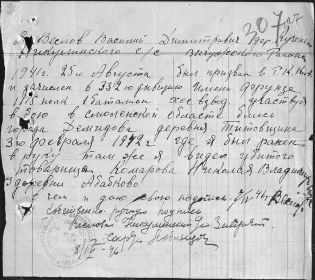 Я Веслов Василий Димитриевич дер.
Никулинского с/с Вичугского Района
1941г. 25го Августа был призван в Г.К.
и зачислен в 332ю дивизию Имени Фрунзе
1115 полк 1 батальон хос взвод. участвуя
в бою в Смоленской Области близ
города Демидова деревня Титовщина
3го февраля 1942г где я был ранен
в руку там же я видел убитого
товарища Комарова Николая Владимир
деревни Абабково
в чем и дою свою подпись.
собственно ручную подпись
Веслова Никулинский с/с Заверяет
8/IV-46